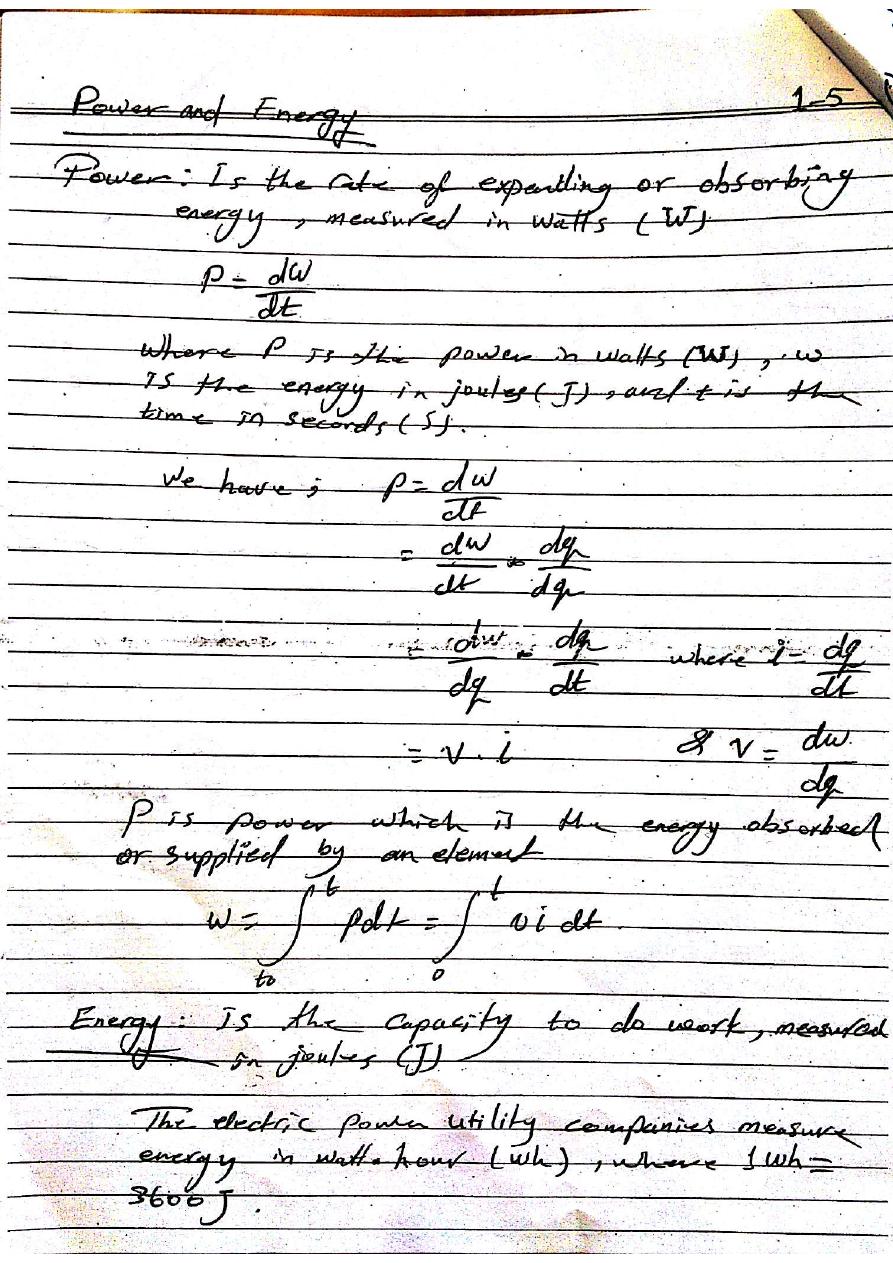 Power and Energy 1-5
Power: Is the rate of expending or absorbing
energy, measured in watts (W)
P = dw/dt
where P is the power in watts (W), w
is the energy in joules (J), and t is the
time in seconds (S).
We have; P = dw/dt
= dw/dt . dq/dq
= dw/dq . dq/dt where i = dq/dt
= v . i & v = dw/dq
P is power which is the energy absorbed
or supplied by an element
w = ∫_to^t pdt = ∫_0^t vi dt.
Energy: Is the capacity to do work, measured
in joules (J)
The electric power utility companies measure
energy in watt-hour (Wh), where 1Wh =
3600J.